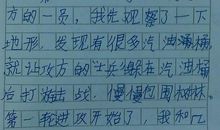 方的一员，我先观察了一下
地形，发现有很多汽油桶
就让攻方的士兵躲在汽油桶
后打游击战，慢慢包围树林。
第一轮进攻开始了，我和